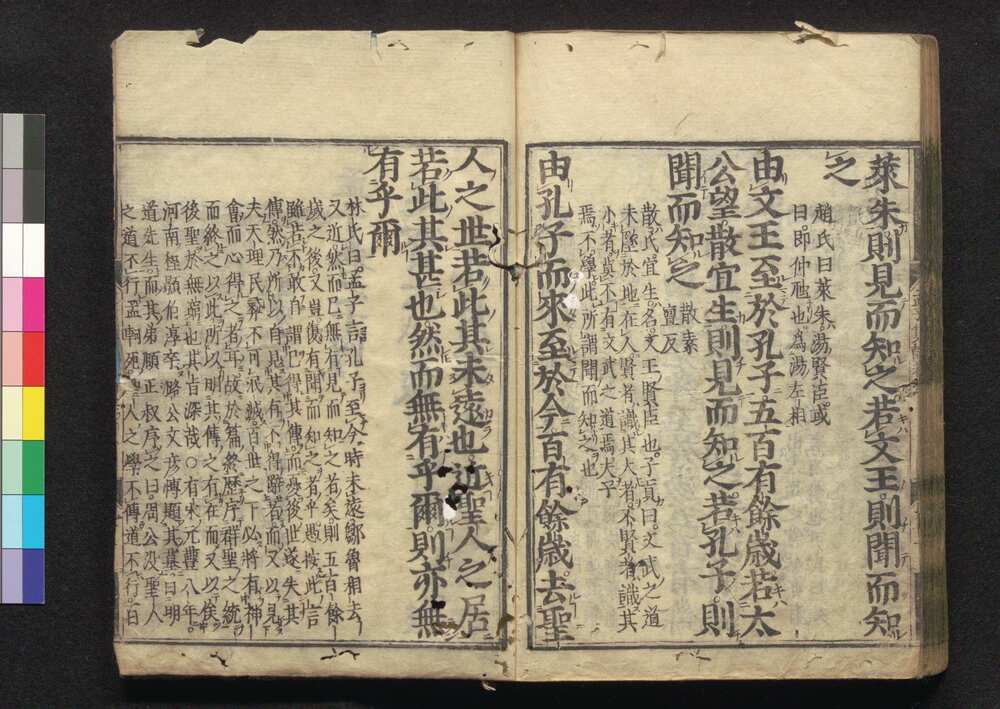 萊朱則見而知之若文王則聞而知
之
趙氏曰萊朱湯賢臣或
曰即仲虺也爲湯左相
由文王至於孔子五百有餘歲若太
公望散宜生則見而知之若孔子則
聞而知之
散素
亶反
散氏宜生名文王賢臣也子貢曰文武之道
未墜於地在人賢者識其大者不賢者識其
小者莫不有文武之道焉夫子
焉不學此所謂聞而知之也
由孔子而來至於今百有餘歲去聖
人之世若此其未遠也近聖人之居
若此其甚也然而無有乎爾則亦無
有乎爾
林氏曰孟子言孔子至今時未遠鄒魯相去
又近然而已無有見而知之者矣則五百餘
歲之後又豈復有聞而知之者乎愚按此言
雖若不敢自謂已得其傳而憂後世遂失其
傳然乃所以自見其有不得辭者而又以見
夫天理民彝不可泯滅百世之下必將有神
會而心得之者耳故於篇終歷序群聖之統
而終之以此所以明其傳之有在而又以俟
後聖於無窮也其旨深哉○有宋元豐八年
河南程顥伯淳卒潞公文彥博題其墓曰明
道先生而其弟頤正叔序之曰周公没聖人
之道不行孟軻死聖人之學不傳道不行百